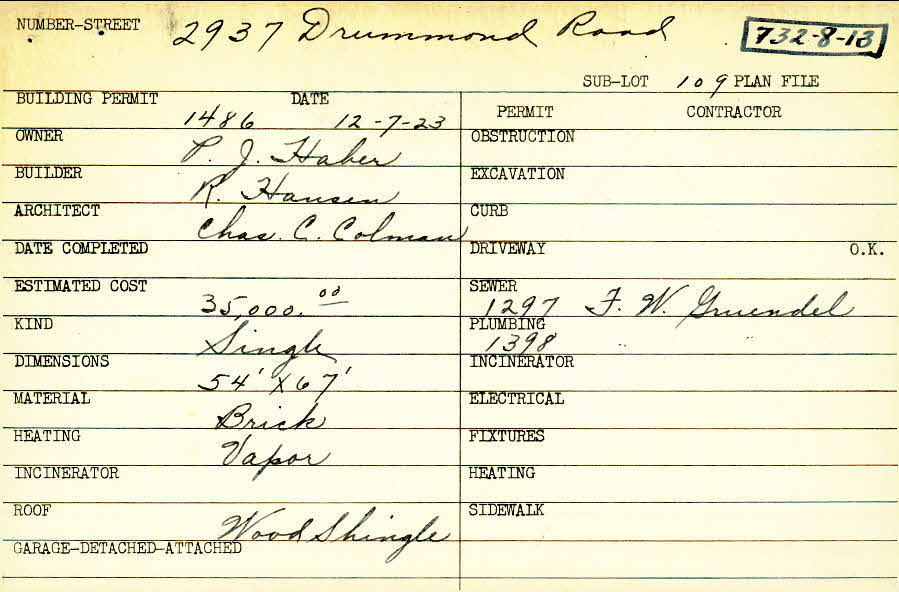 NUMBER-STREET 2937 Drummond Road 732-8-13
SUB-LOT 109 PLAN FILE
BUILDING PERMIT 1486 DATE 12-7-23
PERMIT CONTRACTOR
OWNER P. J. Haber
BUILDER R. Hansen
ARCHITECT Chas. C. Colman
DATE COMPLETED
ESTIMATED COST 35,000.00
KIND Single
DIMENSIONS 54' x 67'
MATERIAL Brick
HEATING Vapor
INCINERATOR
ROOF Wood Shingle
GARAGE-DETACHED-ATTACHED
OBSTRUCTION
EXCAVATION
CURB
DRIVEWAY O.K.
SEWER 1297 F. W. Gruendel
PLUMBING 1398 " "
INCINERATOR
ELECTRICAL
FIXTURES
HEATING
SIDEWALK